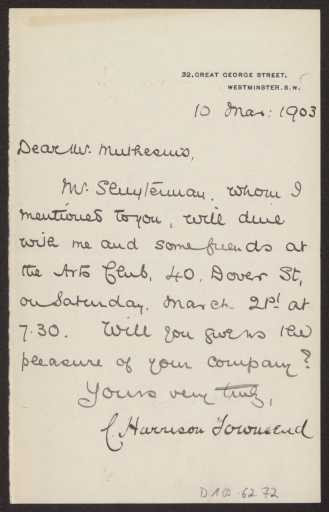 32, GREAT GEORGE STREET,
WESTMINSTER. S.W.
10 Mar: 1903
Dear Mr. Muthesius,
Mr. Sluyterman, whom I
mentioned to you, will dine
with me and some friends at
the Arts Club, 40, Dover St,
on Saturday, March 21st at
7.30. Will you give us the
pleasure of your company?
Yours very truly,
C. Harrison Townsend
6272